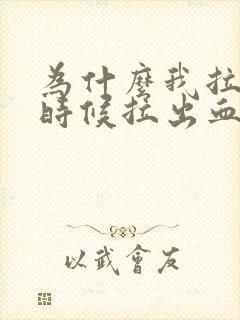 為什麼我拉
時候拉出血
以武會友